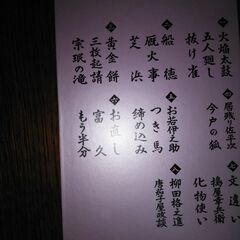 一 火焔太鼓
五人廻し
抜け雀
二 船徳
厩火事
芝浜
三 黄金餅
三枚起請
宗珉の滝
四 居残り佐平次
今戸の狐
五 お若伊之助
つき馬
締め込み
六 お直し
富久
もう半分
七 文違い
搗屋幸兵衛
化物使い
八 柳田格之進
唐茄子屋政談